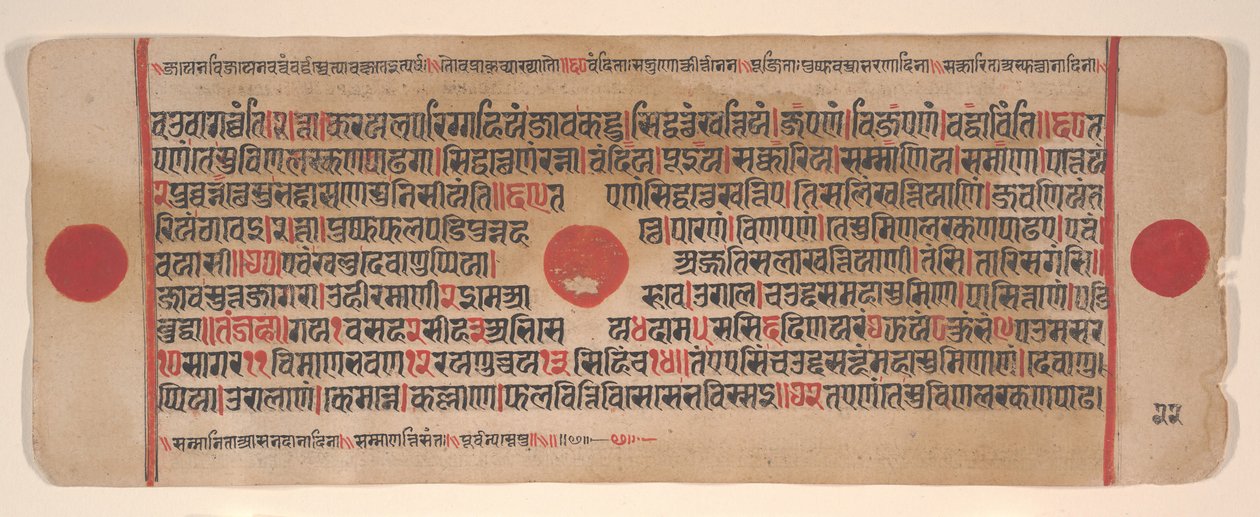 वंदिताः सद्गुणोत्कीर्त्तनेन॥पूजिताः पुष्पवस्त्राभरणादिना॥सत्कारिता अभ्युत्थानादिना॥
व उवागच्छंति।२।त्ता।करतलपरिग्गहियं जाव कट्टु।सिद्धत्थं खत्तियं।जएणं।विजएणं।वद्धाविंति॥६७त
एणं ते सुविणलक्खणपाढगा।सिद्धत्थेणं रन्ना।वंदिया।पूइया।सक्कारिया।सम्माणिया।समाणा।पत्तेयं
२पुव्वन्नत्थेसु भद्दासणेसु निसीयंति॥६८त एणं सिद्धत्थे खत्तिए।तिसलं खत्तियाणिं।जवणियंत
रियं ठावेइ।२।त्ता।पुप्फफलपडिपुन्नह त्थे।परेणं।विणएणं।ते सुमिणलक्खणपाढए।एवं
वयासी॥६९।एवं खलु देवाणुप्पिया। अज्ज तिसला खत्तियाणी।तंसि।तारिसगंसि॥
जाव सुत्तजागरा।उहीरमाणी२इमेआ रूवे।उराले।चउद्दस महासुमिणे।पासित्ताणं।पडि
बुद्धा॥तं जहा॥गय१वसह२सीह३अभिसे य४दाम५ससि६दिणयरं७झयं८कुंभं९पउमसर
१०सागर११विमाणभवण१२रयणुच्चय१३सिहिं च१४॥तं एएसिं चउद्दसण्हं महासुमिणाणं।देवाणु
प्पिया।उरालाणं।के मन्ने।कल्लाणे।फलवित्तिविसेसे भविस्सइ॥७०तएणं ते सुविणलक्खणपाढा
सन्मानिता आसनदानादिना॥सम्माणत्तिसंतः॥पूर्वन्यस्तेषु॥